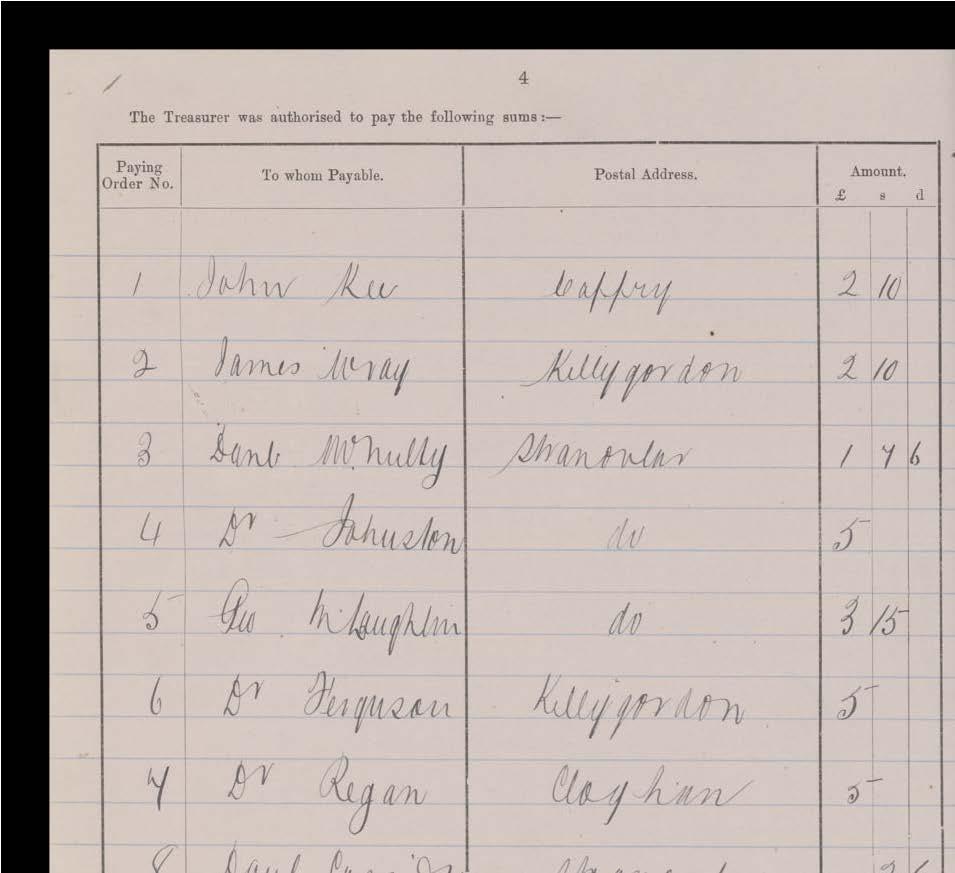 4
The Treasurer was authorised to pay the following sums :—
Paying Order No. To whom Payable. Postal Address. Amount.
£ s d
1 John Kee Cappry 2 10
2 James Wray Killygordon 2 10
3 Danl McNulty Stranorlar 1 7 6
4 Dr Johnston do 5
5 Geo McLaughlin do 3 15
6 Dr Ferguson Killygordon 5
7 Dr Regan Cloghan 5
8 Danl